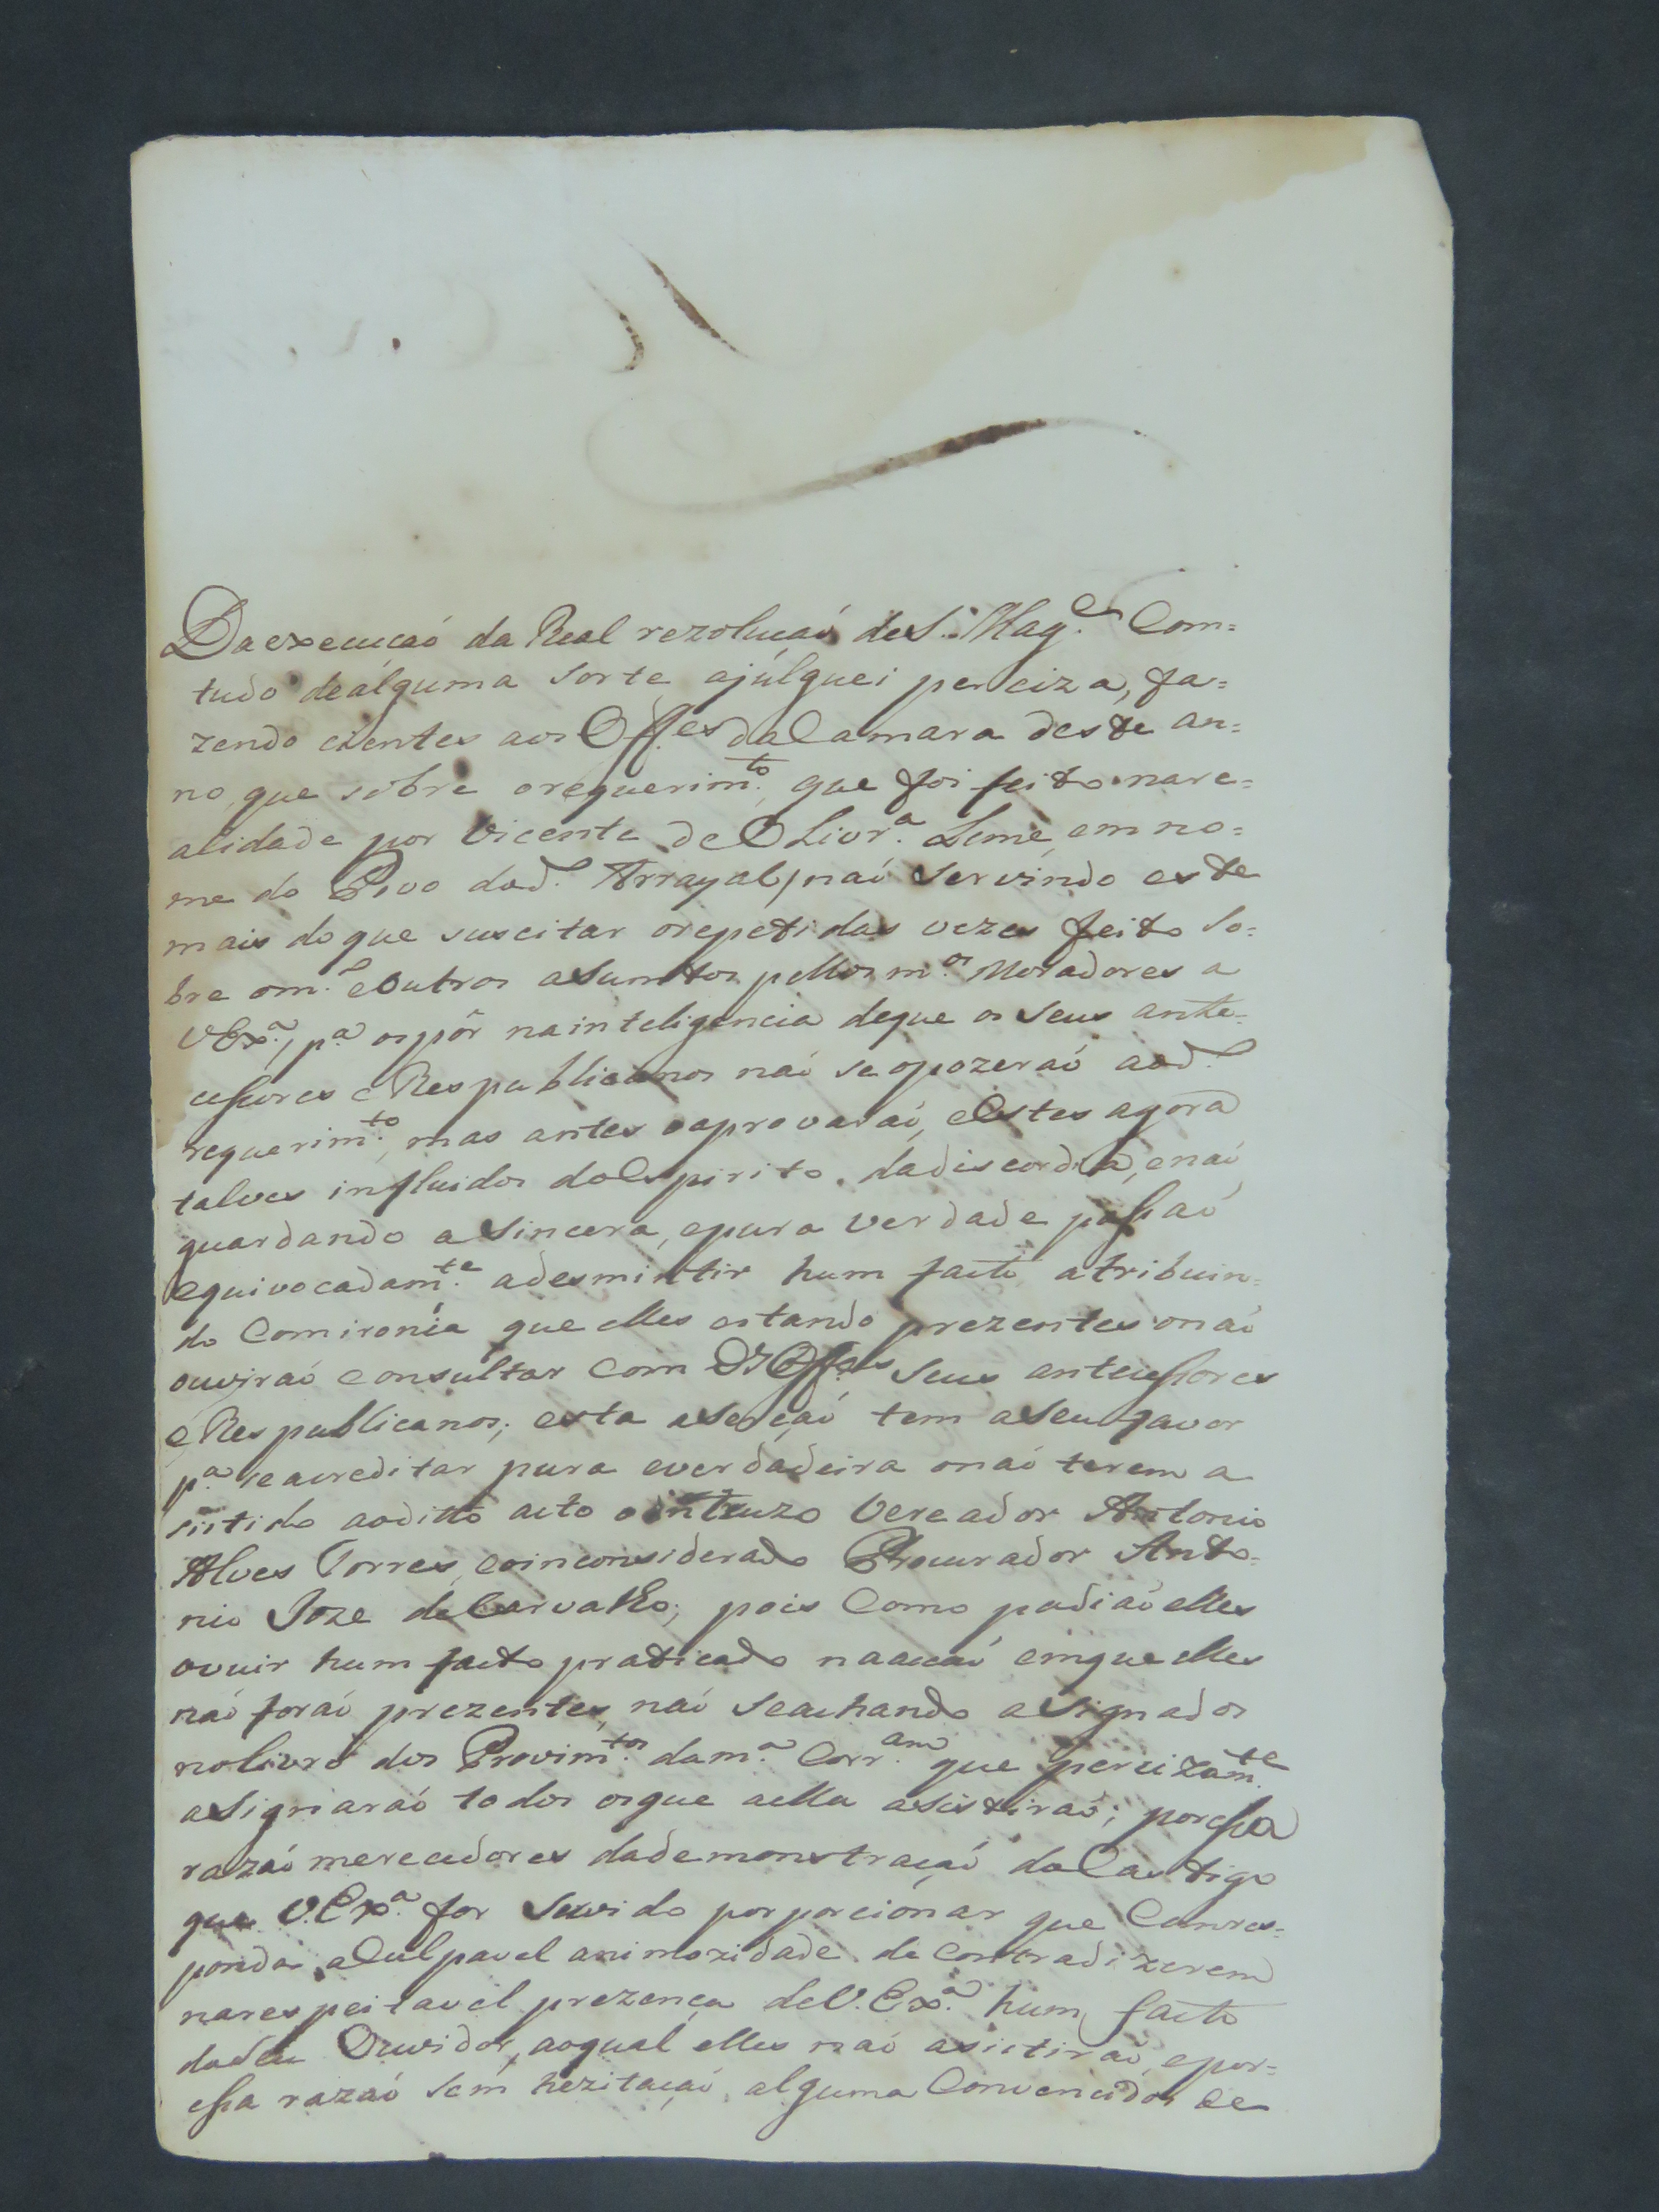 Da execuçaõ da Real rezoluçaõ de S. Mag.e Com=
tudo de alguma sorte ajúlguei perciza, fa=
zendo cientes aos Off.es da Camara deste an=
no, que sobre o requerim.to, que foi feito na re=
alidade por Vicente de OLivr.a Leme, em no=
me do Povo dod.o Arrayal, naõ servindo este
mais do que suscitar o repetidas vezes feito So=
bre om.o e Outros aSumtos pellos m.os Moradores a
VEx.a, p.a os pôr na inteligencia de que os Seus ante=
cessores e Respublicanos naõ se opozeraõ aod.o
requerim.to, mas antes o aprovaraõ, e Estes agora
talves influidos do Espirito da discordia, e naõ
guardando a Sincera, e pura verdade passaõ
equivocadam.te a desmintir hum facto, atribuin=
do Com ironia que elles estando prezentes o naõ
ouviraõ consultar Com Os Off.es Seus antecessores
e Respublicanos; esta aserçaõ tem a Seu favor
p.a se acreditar pura e verdadeira o naõ terem a
sistido ao ditto acto o intruzo Vereador Antonio
Alves Torres, e o inconsiderado Procurador Anto=
nio Joze de Carvalho; pois Como podiaõ elles
ovuir hum facto praticado na acçaõ em que elles
naõ foraõ prezentes, naõ Se achando aSignados
no livro dos Provim.tos da m.a Corr.am que percizam.te
aSignaraõ todos os que a ella asistiraõ; por essa
razaõ merecedores da demonstraçaõ do Castigo
que V.Ex.a for Servido porporcionar que Corres=
ponda a Culpavel animozidade de Contradizerem
na respeitavel prezença de V.Ex.a hum facto
do Seu Ouvidor, ao qual elles naõ asistiraõ, e por=
essa razaõ Sem hezitaçaõ alguma Convencidos de